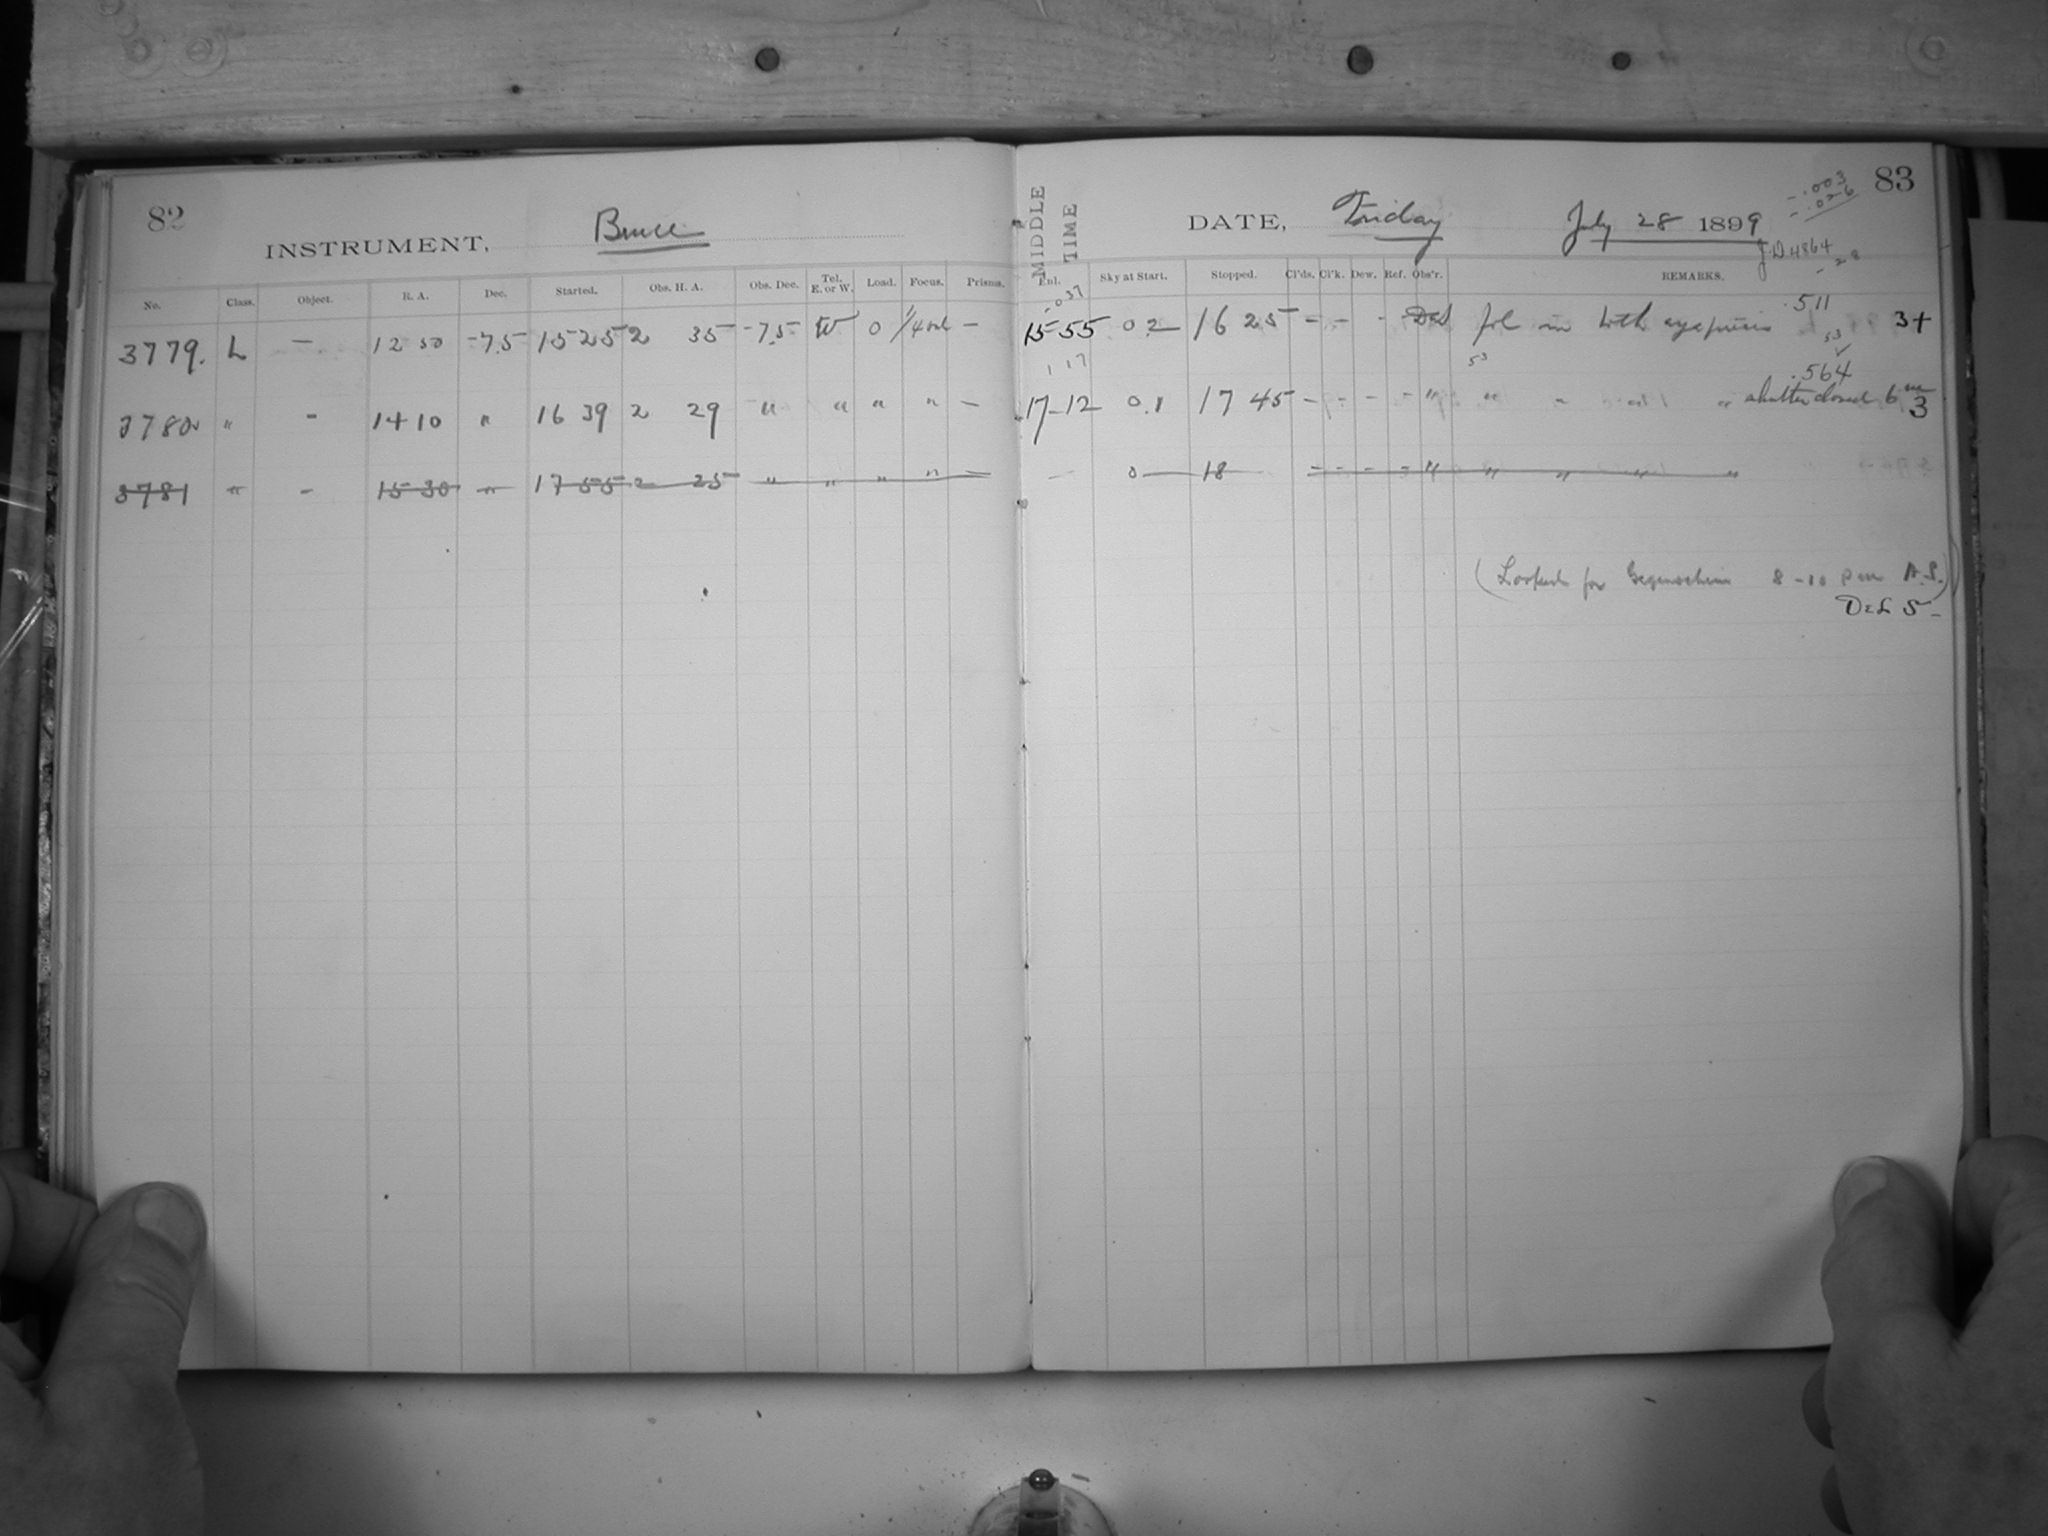 82
INSTRUMENT, Bruce
No. Class. Object. R. A. Dec. Started. Obs. H. A. Obs. Dec. Tel. E. or W. Load. Focus. Prisms.
3779. L — 12 50 -75 15 25 2 35 -75 W 0 —
3780 " - 14 10 " 16 39 2 29 " " " " —
3781 " - 15 30 " 17 55 2 25 " " " " —
83
-.003
-.026
MIDDLE TIME
DATE, Friday July 28 1899
J.D 4864
-28
Enl. Sky at Start. Stopped. Cl'ds. Cl'k. Dew. Ref. Obs'r. REMARKS.
.037 .511
15-55 0 2 16 25 - - - Fol in both eyepieces 3+
53
1 17 53 .564
17-12 0.1 17 45 - - - - " " " " shutter closed 6m 3
— 0 18 - - - - " " " " "
(Looked for Gegenschein 8-10 pm A.S.)